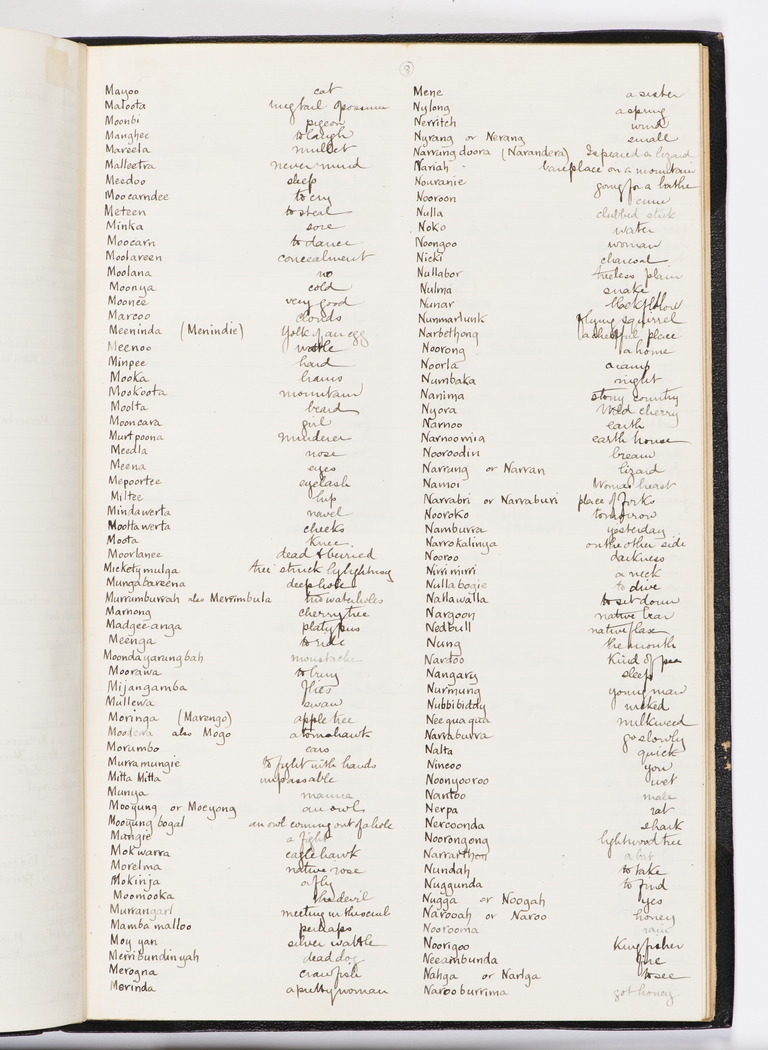 8
Mayoo cat
Maloota ringtail opossum
Moonbi pigeon
Manghee to laugh
Mareela mullet
Malleetra never mind
Meedoo sleep
Moocarndee to cry
Meteen to steal
Minka sore
Moocarn to dance
Moolareen concealment
Moolana no
Moonya cold
Moonee very good
Marcoo clouds
Meeninda (Menindie) Yolk of an egg
Meenoo wattle
Minpee hard
Mooka
Mookoota mountain
Moolta beard
Mooncara girl
Murtpoona murderer
Meedla nose
Meena eyes
Mepoortee eyelash
Miltee lip
Mindawerta navel
Moottawerta cheeks
Moota knee
Moorlanee dead & buried
Micketymulga tree struck by lightning
Mungabareena deep hole
Murrumburrah also Merrimbula two waterholes
Marnong cherry tree
Madgee-anga platypus
Meenga to ride
Moondayarungbah moustache
Moorawa to bury
Mijangamba flies
Mullewa swan
Moringa (Marengo) apple tree
also Mogo a tomahawk
Morumbo ears
Murramungie to fight with hands
Mitta Mitta impassable
Munya manna
Mooyung or Moeyong an owl
Mooyung bogal an owl coming out of a hole
Mangie a fight
Mokwarra eaglehawk
Morelma native rose
Mokinja a fly
Moomooka the devil
Murrangarl meeting in the scrub
Mamba malloo perhaps
Moy yan silver wattle
Merribundinyah dead dog
Merogna crawfish
Merinda a pretty woman
Mene a sister
Nylong a spring
Nerritch wind
Nyrang or Nerang small
Narrungdoora (Narandera) I speared a lizard
Nariah bare place on a mountain
Nouranie going for a bathe
Nooroon emu
Nulla clubbed stick
Noko water
Noongoo woman
Nicki charcoal
Nullabor treeless plain
Nulma snake
Nunar blackfellow
Nunmarlunk flying squirrel
Narbethong a cheerful place
Noorong a home
Noorla a camp
Numbaka night
Nanima stony country
Nyora Wild cherry
Narnoo earth
Narnoomia earth house
Nooroodin bream
Narrung or Narran lizard
Namoi Womans breast
Narrabri or Narraburi place of forks
Nooroko tomorrow
Namburra yesterday
Narrokalinya on the other side
Nooroo darkness
Nirrinirri a neck
Nullabogie to dive
Nallawalla to sit down
Nargoon native bear
Nedbull native flax
Nung the mouth
Nardoo Kind of pea
Nangary sleep
Nurmung young man
Nubbibiddy wicked
Neequaqua milkweed
Narraburra go slowly
Nalta quick
Nineoo you
Noonyooroo wet
Nantoo male
Nerpa rat
Nercoonda shark
Noorongong lightwood tree
Narrarthon a bat
Nundah to take
Nuggunda to find
Nugga or Noogah yes
Narooah or Naroo honey
Noorooma rain
Noorigoo Kingfisher
Neeambunda fire
Nahga or Narlga to see
Narooburrima got honey